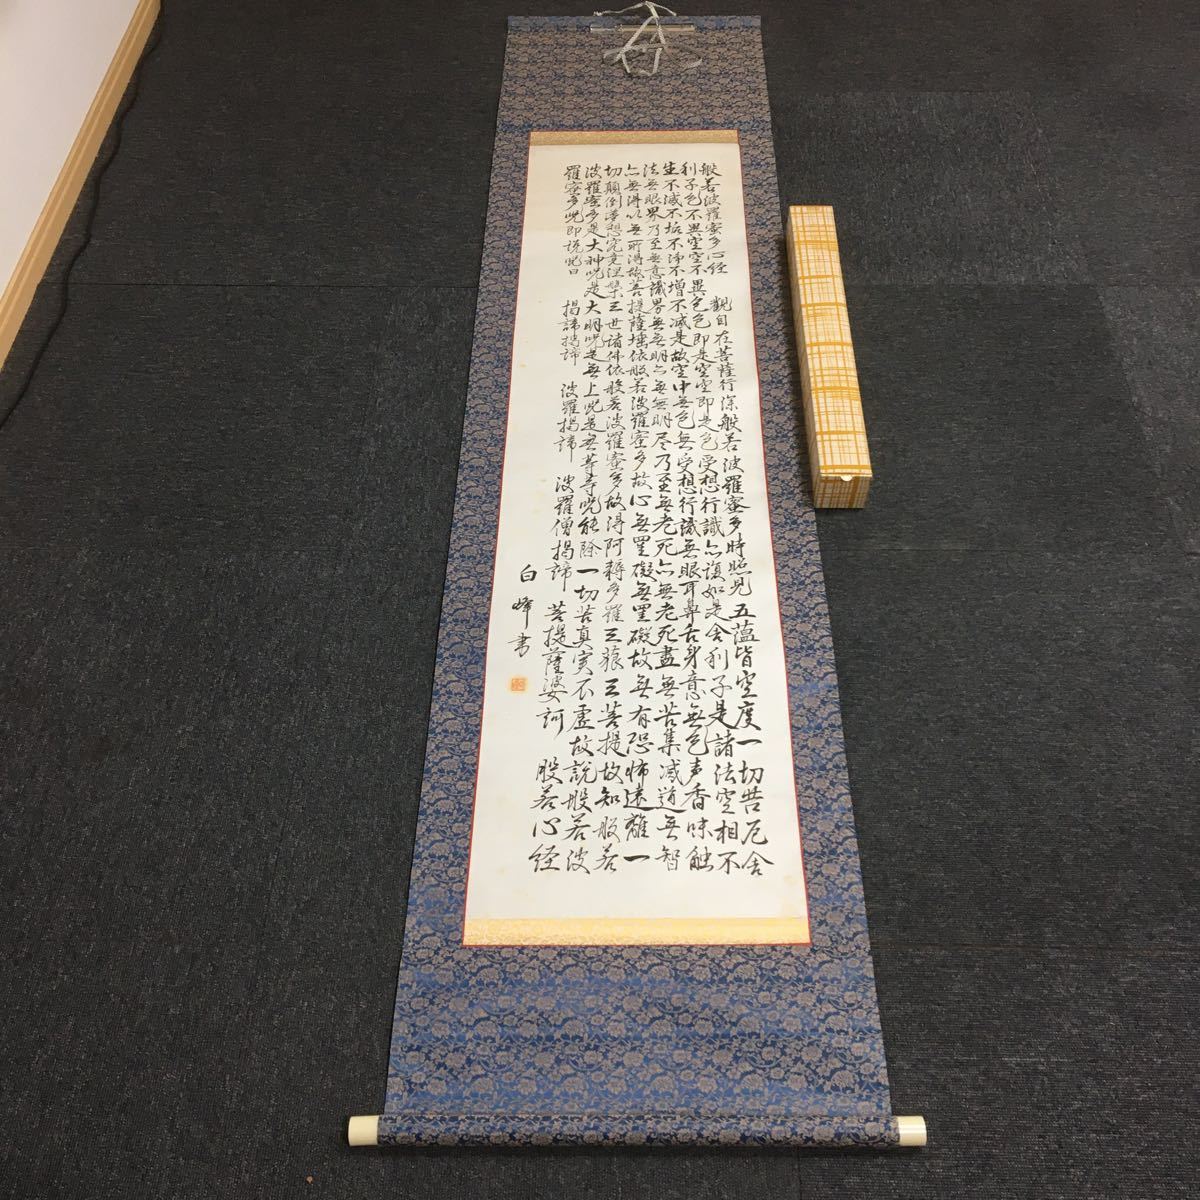 般若波羅蜜多心经 観自在菩薩行深般若波羅蜜多時照見五蘊皆空度一切苦厄舎
利子色不異空空不異色色即是空空即是色受想行識亦復如是舎利子是諸法空相不
生不滅不垢不浄不増不減是故空中無色無受想行識無眼耳鼻舌身意無色声香味触
法無眼界乃至無意識界無無明亦無無明尽乃至無老死亦無老死盡無苦集滅道無智
亦無得以無所得故菩提薩埵依般若波羅蜜多故心無罣礙無罣礙故無有恐怖遠離一
切顛倒夢想究竟涅槃三世諸佛依般若波羅蜜多故得阿耨多羅三藐三菩提故知般若
波羅蜜多是大神呪是大明呪是無上呪是無等等呪能除一切苦真実不虚故説般若波
羅蜜多呪即説呪曰 揭諦揭諦 波羅揭諦 波羅僧揭諦 菩提薩婆訶 般若心経
白峰書